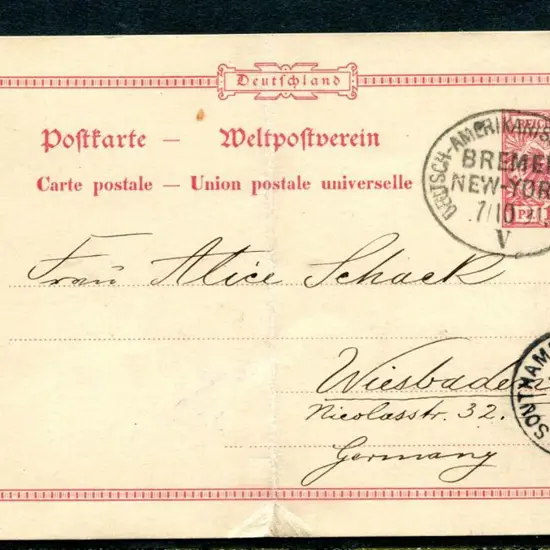 Deutschland
Postkarte — Weltpostverein
Carte postale — Union postale universelle
REICH
DEUTSCH-AMERIKANIS
BREMEN
NEW-YOR
7/10
V
Frau Alice Schack
Wiesbaden
Nicolasstr. 32.
Germany
SOUTHAM